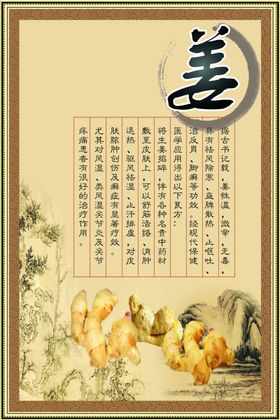 姜
据古书记载，姜性温，微辛，无毒，
具有祛风除寒、益脾散热、止呕吐、
治反胃、脚癣等功效。经现代保健
医学应用得出以下良方：
将生姜捣碎，伴有各种名贵中药材
敷至皮肤上，可以舒筋活络、消肿
退热、驱风祛湿、止汗排虚，对皮
肤脓肿创伤及癣症有显著疗效。
尤其对风湿、类风湿关节炎及关节
疼痛患者有很好的治疗作用。